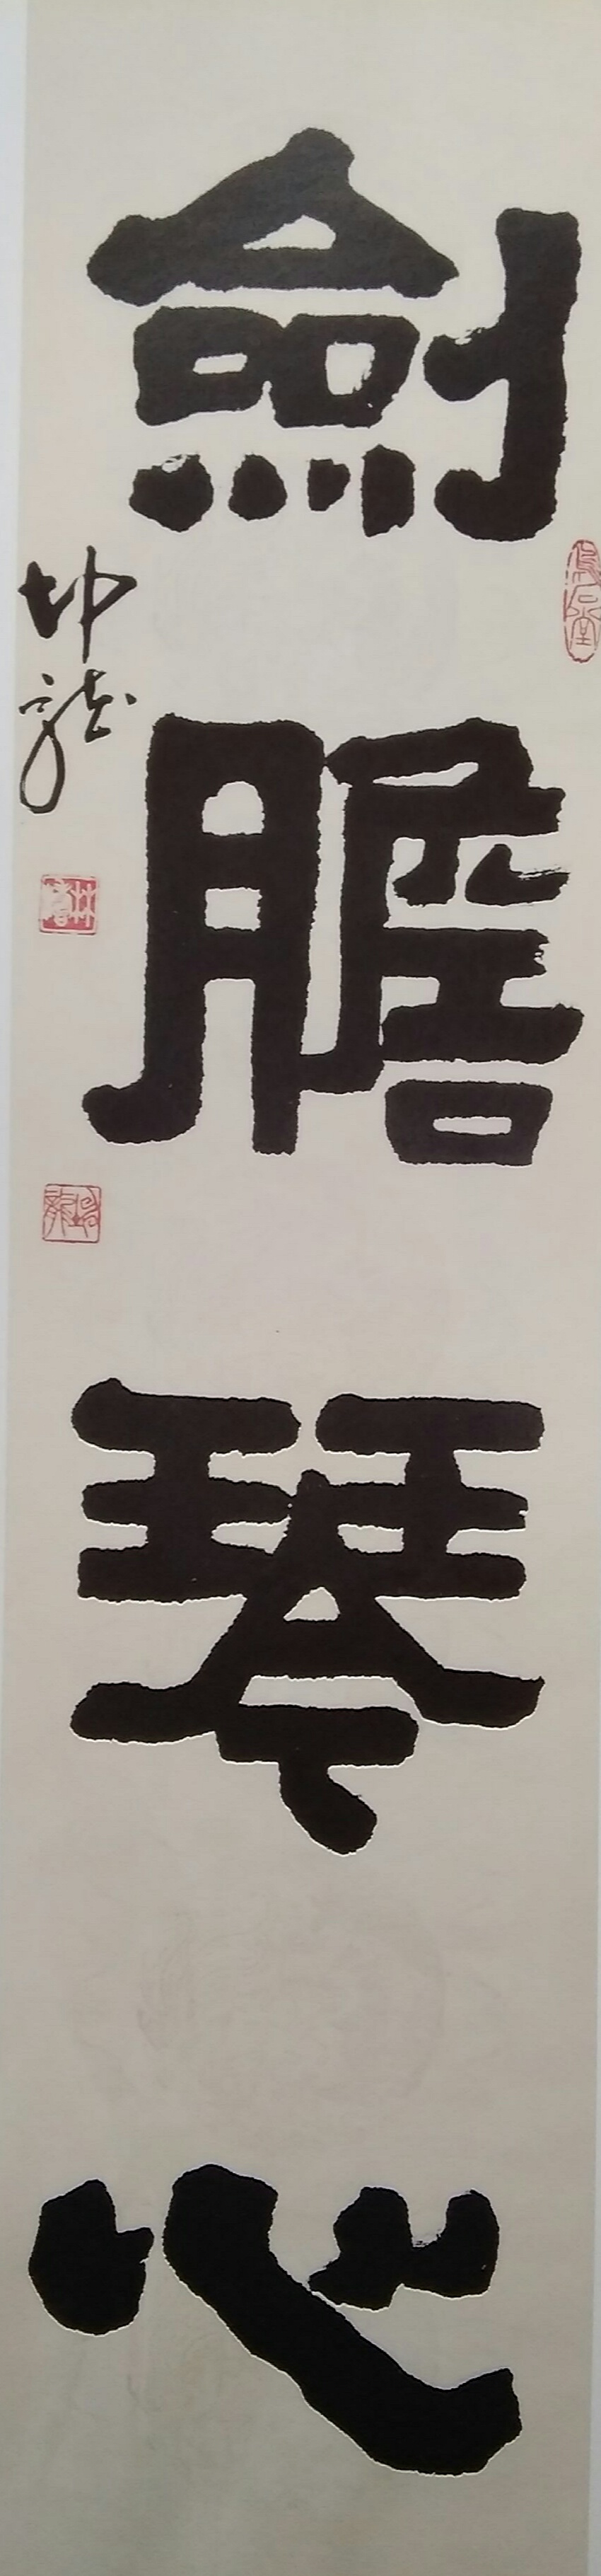 劍膽琴心
坤龍